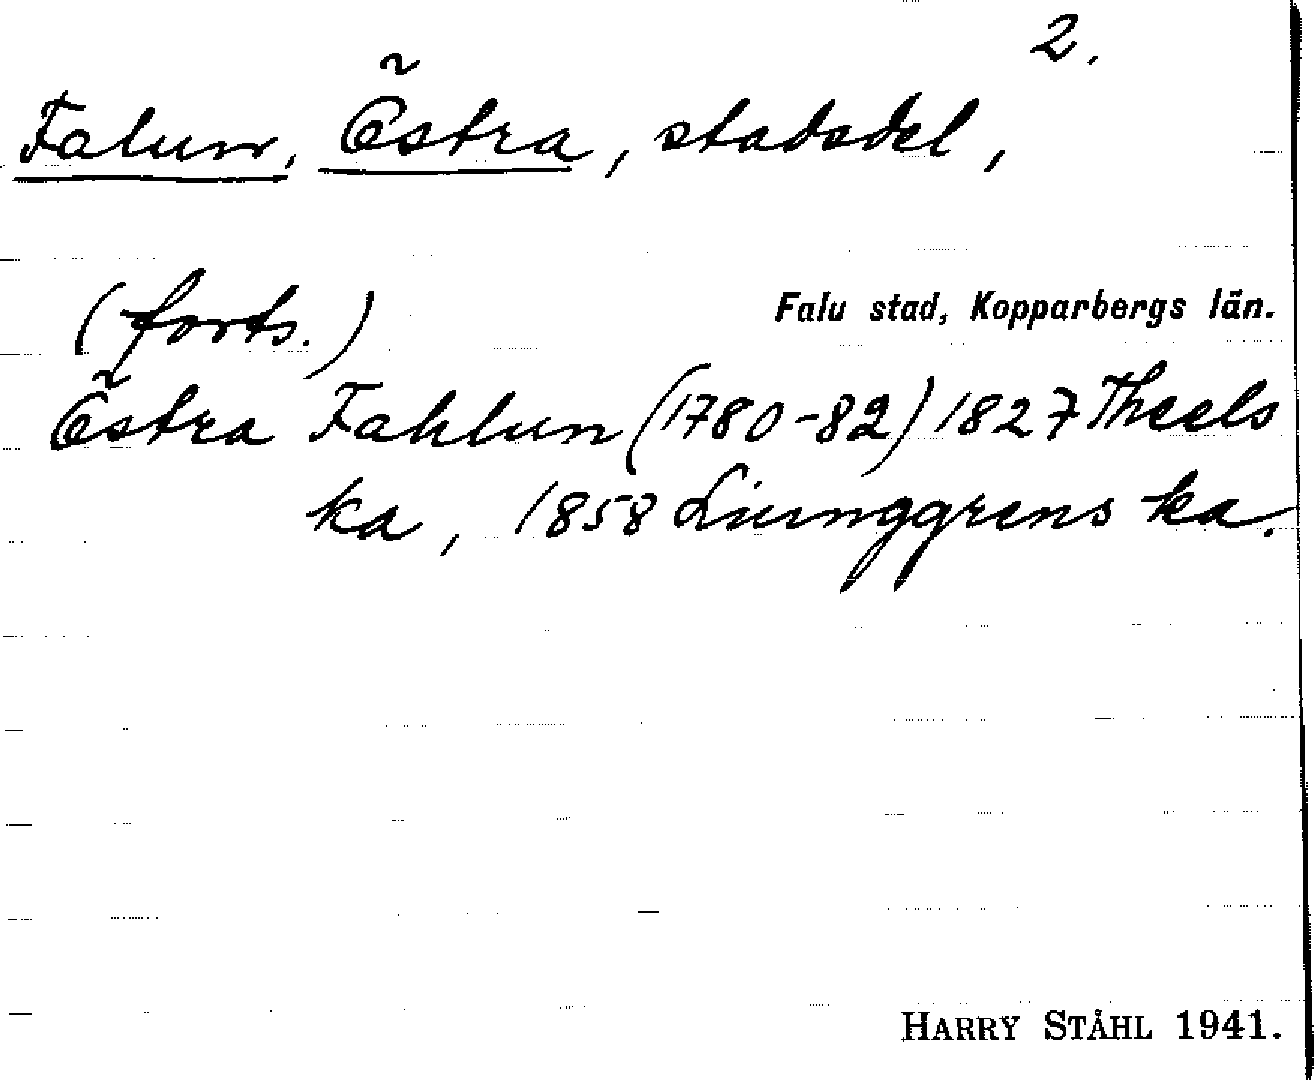 2.
Falun, Östra, stadsdel,
(forts.)
Falu stad, Kopparbergs län.
Östra Fahlun (1780-82) 1827 Theels
ka, 1858 Liunggrens ka.
HARRY STÅHL 1941.